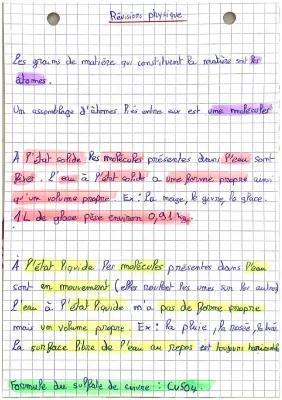 Révisions physique
Les grains de matière qui constituent la matière sont les
atomes.
Un assemblage d'atomes liés entre eux est une molécules
À l'état solide les molécules présentes dans l'eau sont
fixes. L'eau à l'état solide a une forme propre ainsi
qu'un volume propre. Ex : la neige, le givre, la glace.
1L de glace pèse environ 0,91kg.
À l'état liquide les molécules présentes dans l'eau
sont en mouvement (elles roulent les unes sur les autres)
L'eau à l'état liquide n'a pas de forme propre
mais un volume propre. Ex : la pluie, la rosée,
La surface libre de l'eau au repos est toujours horizontale
Formule du sulfate de cuivre : CuSO4